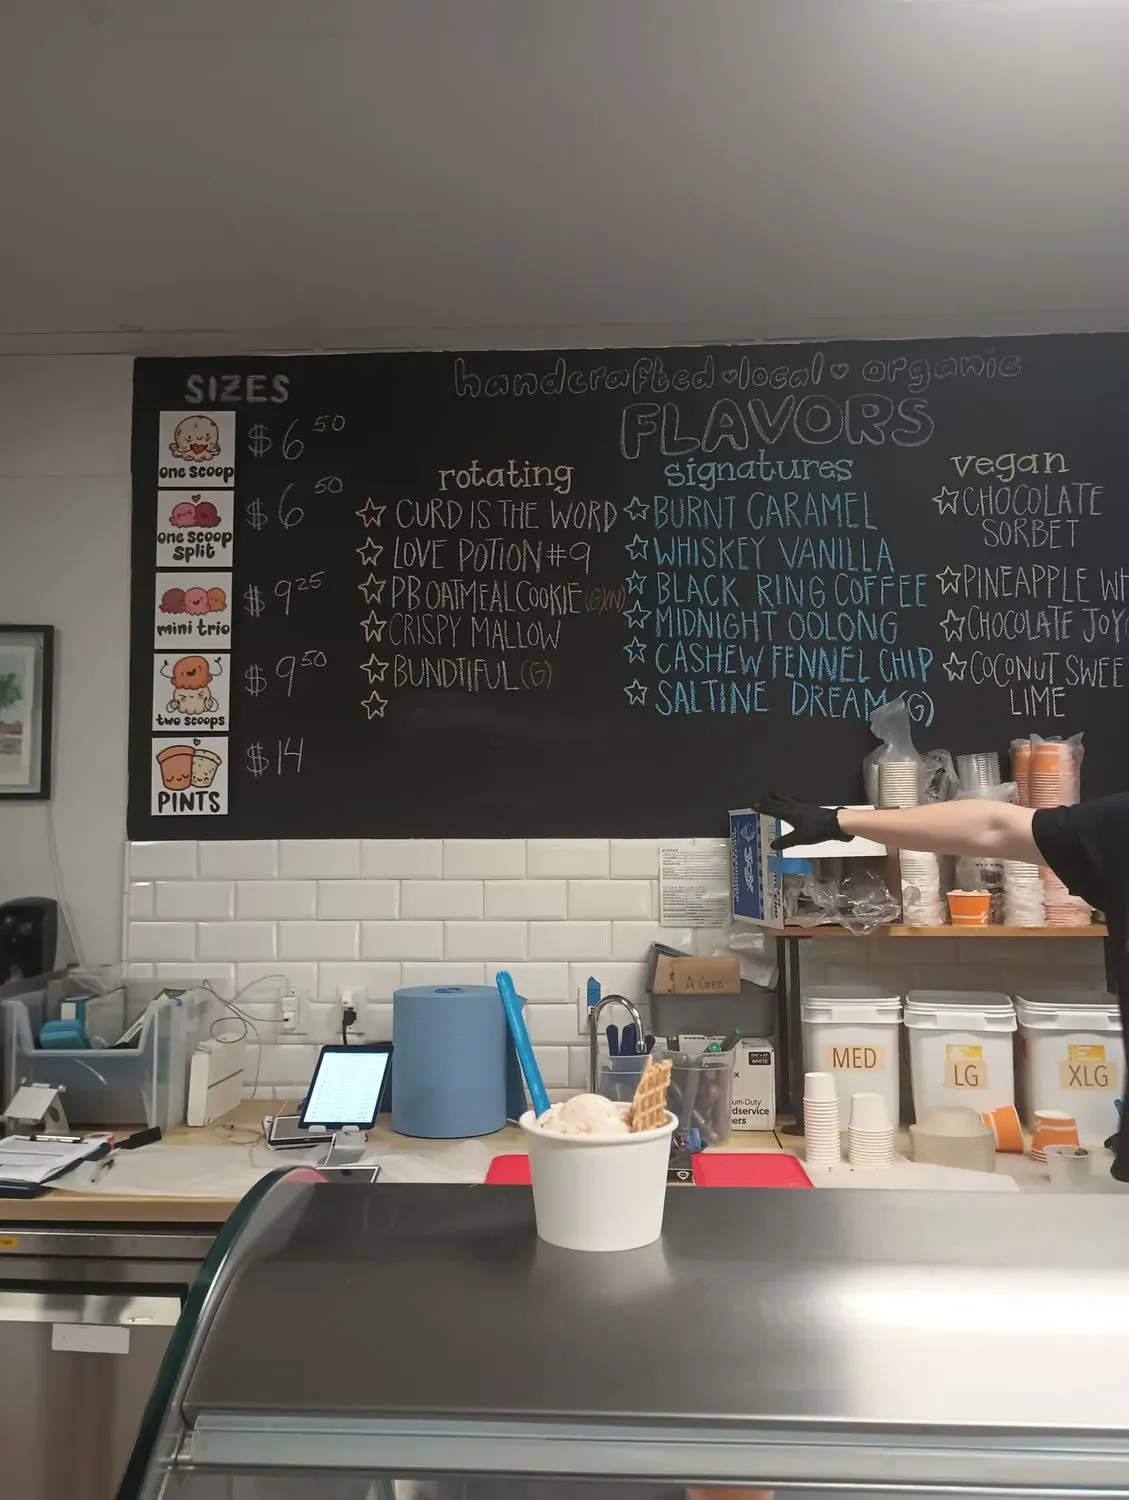 SIZES
one scoop
$6 50
one scoop
split
$6 50
mini trio
$9 25
two scoops
$9 50
PINTS
$14
handcrafted local organic
FLAVORS
rotating
CURD IS THE WORD
LOVE POTION #9
PB OATMEAL COOKIE (G)(N)
CRISPY MALLOW
BUNDTIFUL (G)
signatures
BURNT CARAMEL
WHISKEY VANILLA
BLACK RING COFFEE
MIDNIGHT OOLONG
CASHEW FENNEL CHIP
SALTINE DREAM (G)
vegan
CHOCOLATE
SORBET
PINEAPPLE WH
CHOCOLATE JOY
COCONUT SWEE
LIME
MED
LG
XLG